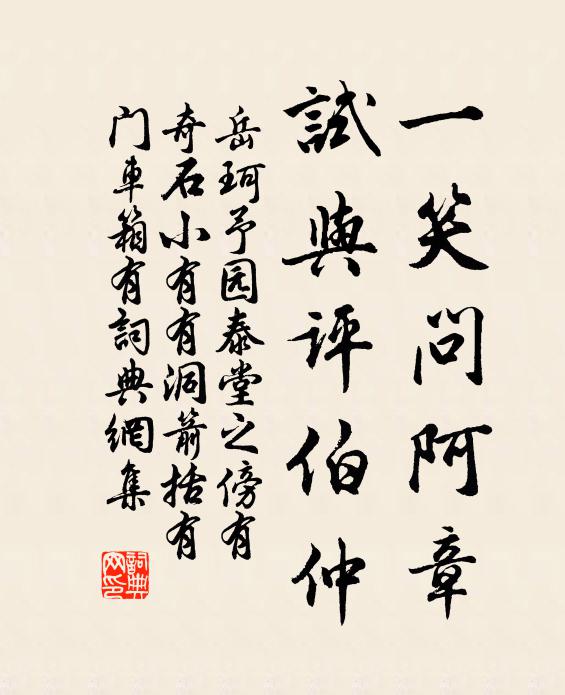 一笑問阿章
試與評伯仲
岳珂予园泰堂之傍有
奇石小有有洞箭括有
门車箱有詞典網集
詞典網印